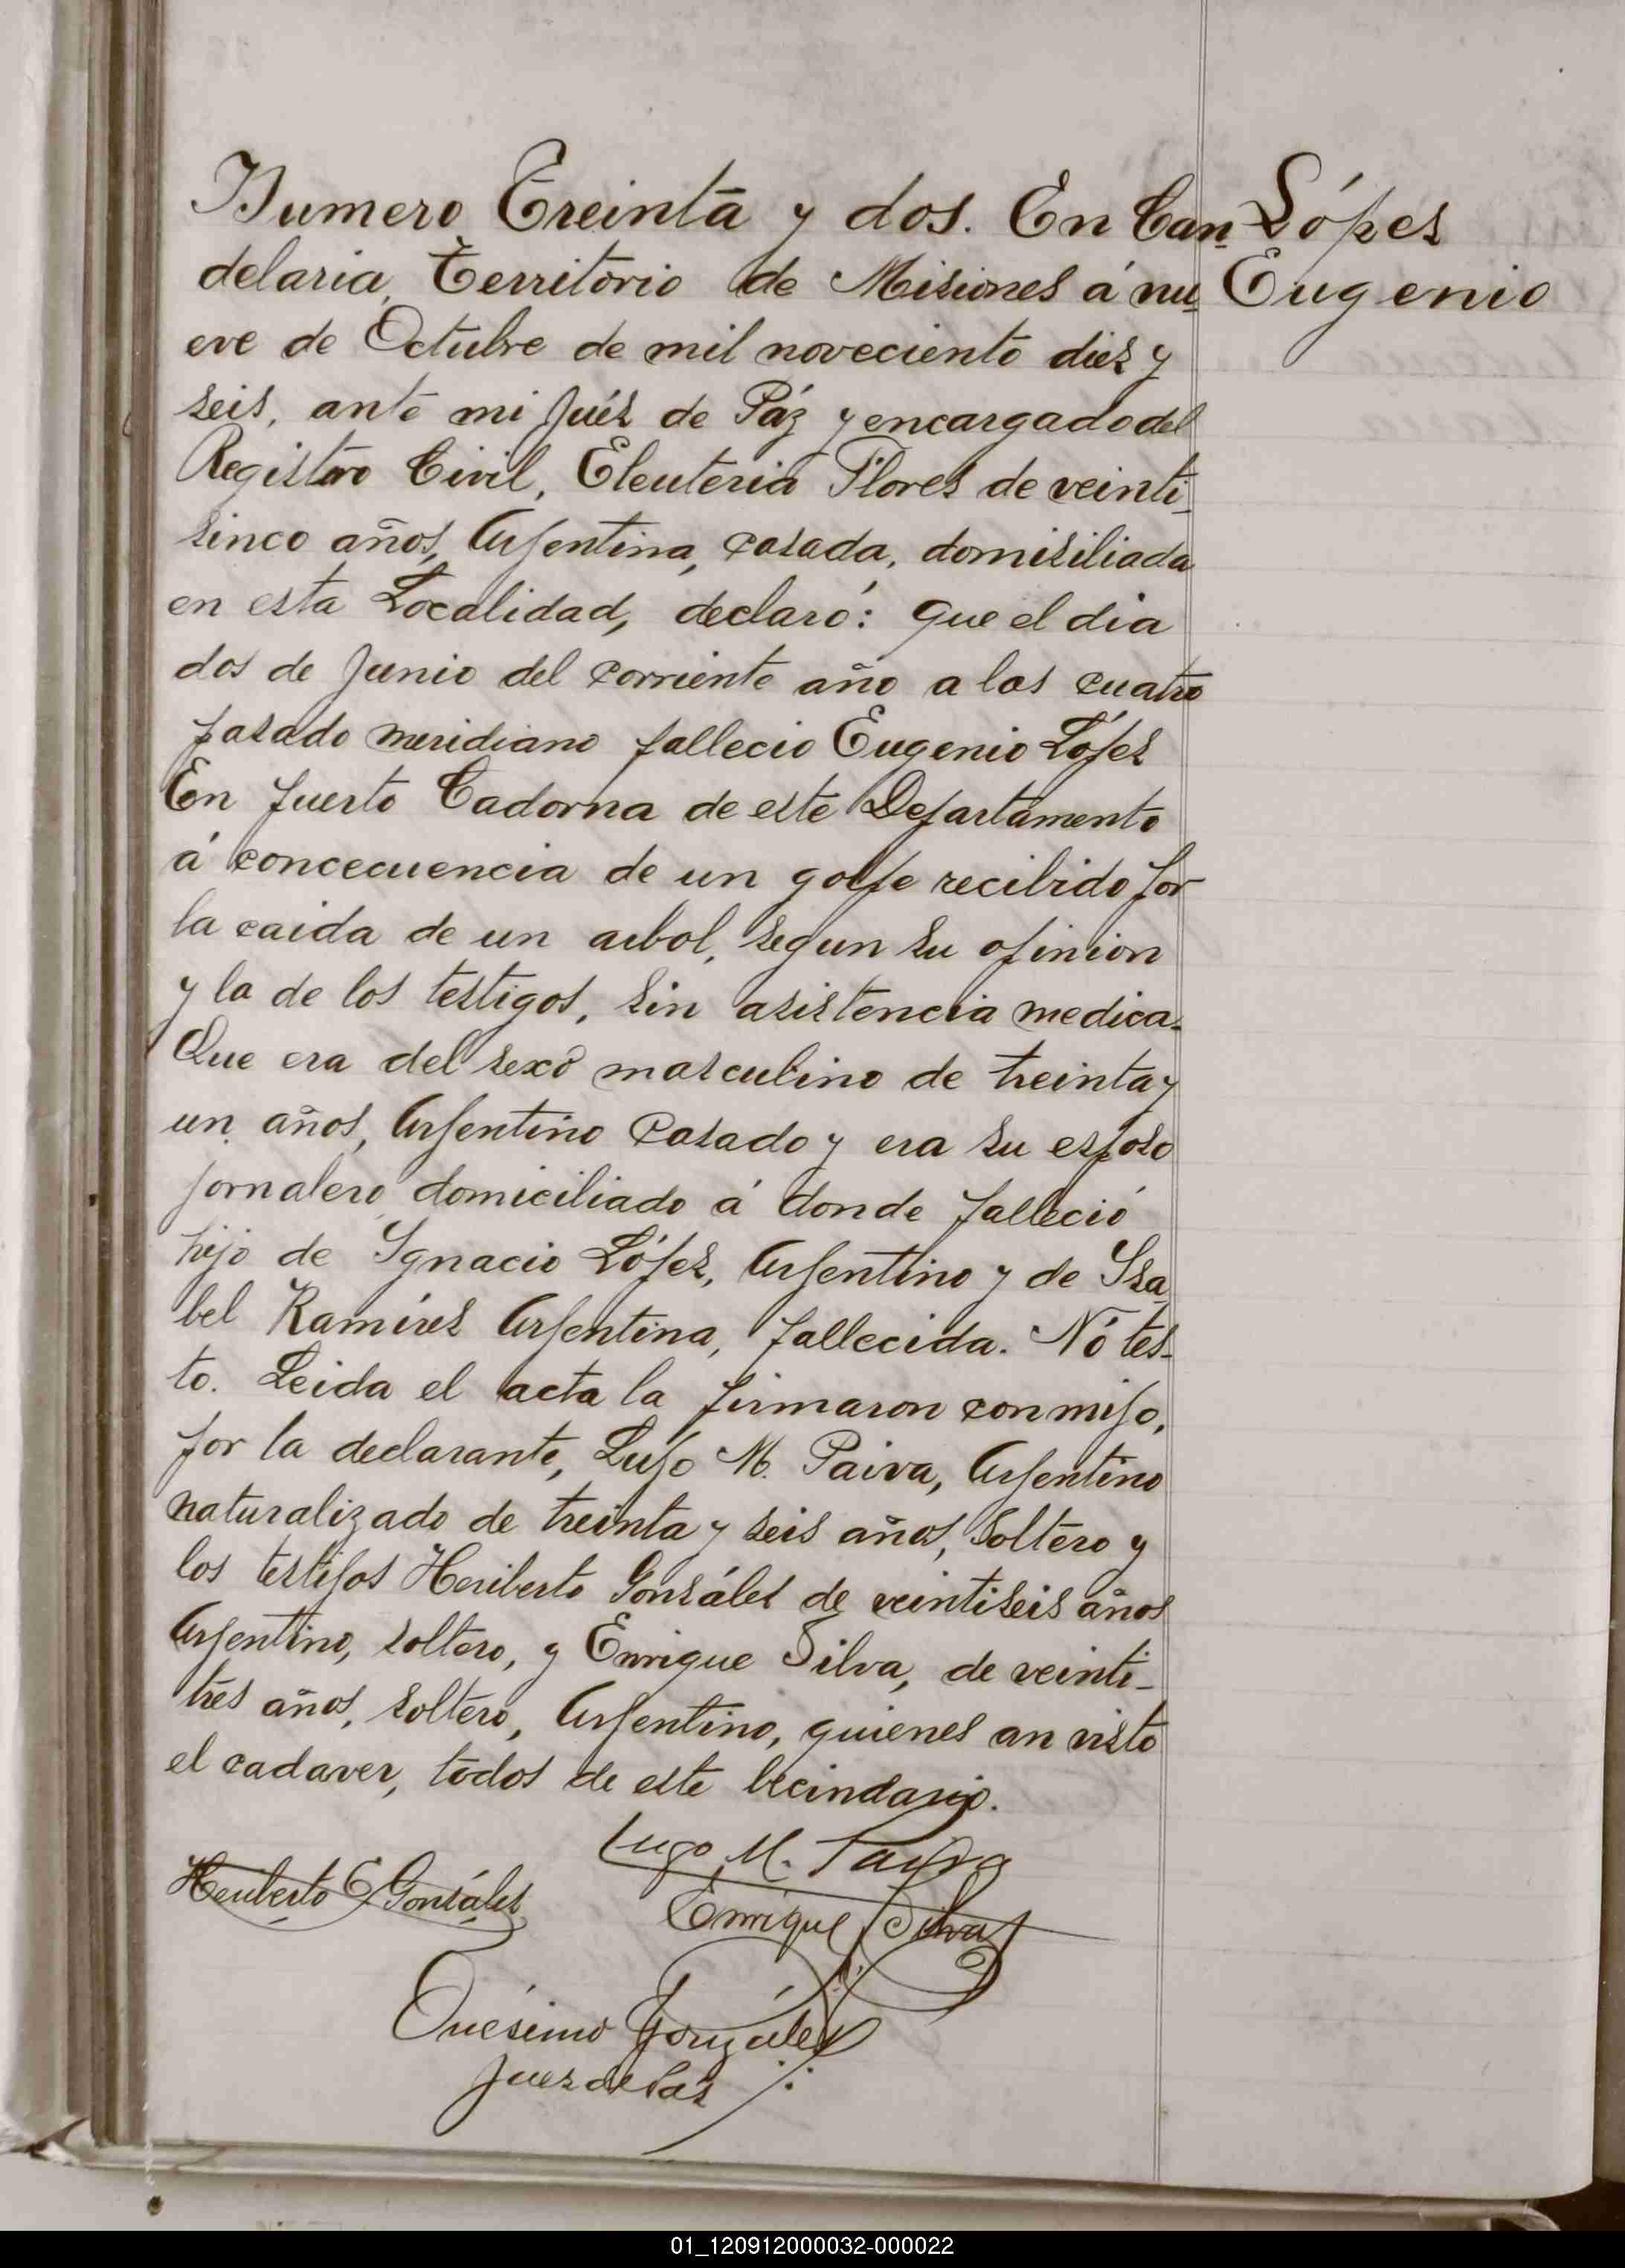 Numero Treinta y dos. En Can
López
delaria, Territorio de Misiones á nu
Eugenio
eve de Octubre de mil noveciento diez y
seis, ante mi Juéz de Páz y encargado del
Registro Civil, Eleuteria Flores de veinti
sinco años, Argentina, casada, domisiliada
en esta Localidad, declaró: que el dia
dos de Junio del corriente año a las cuatro
pasado meridiano fallecio Eugenio López
En puerto Cadorna de este Departamento
á concecuencia de un golpe recibido por
la caida de un arbol, segun su opinion
y la de los testigos, sin asistencia medica.
Que era del sexo masculino de treinta y
un años, Argentino Casado y era su esposo
jornalero domiciliado á donde falleció
hijo de Ignacio López, Argentino y de Isa
bel Ramírez Argentina, fallecida. Nó tes-
to. Leida el acta la firmaron conmigo,
por la declarante, Lugo M. Paiva, Argentino
naturalizado de treinta y seis años, Soltero y
los testigos Heriberto Gonzáles de veintiseis años
Argentino, soltero, y Enrique Silva, de veinti-
trés años, soltero, Argentino, quienes an visto
el cadaver, todos de este becindario.
Lugo M. Paiva
Heriberto G Gonzáles
Enrique Silva
Onésimo González
Juez de Paz
01_120912000032-000022